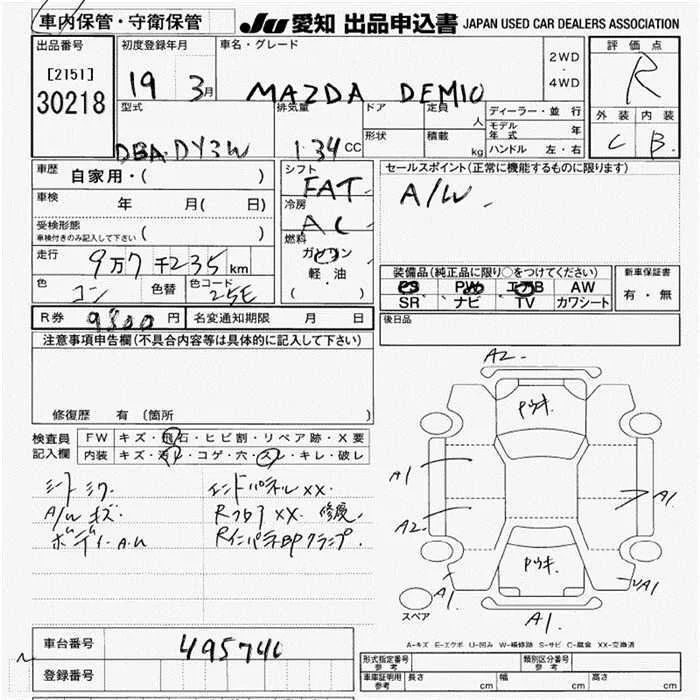 車内保管・守衛保管
JU 愛知 出品申込書 JAPAN USED CAR DEALERS ASSOCIATION
出品番号
[2151]
30218
初度登録年月
19 3月
車名・グレード
MAZDA DEMIO
2WD
・
4WD
評価点
R
外装 内装
C B
型式
DBA・DY3W
排気量
1.34 CC
ドア
定員
人
形状
積載
kg
ディーラー・並行
モデル年式 年
ハンドル 左・右
車歴
自家用・( )
車検
年 月( 日)
受検形態
車検付きのみ記入して下さい
( )
走行
9万7千235km
色
コン
色替
色コード
25E
シフト
FAT
冷房
AC
燃料
ガソリン
軽油
( )
セールスポイント(正常に機能するものに限ります)
A/W
装備品(純正品に限り○をつけてください)
PS PW エアB AW
SR ナビ TV カワシート
新車保証書
有・無
R券 9800円
名変通知期限 月 日
後日品
注意事項申告欄(不具合内容等は具体的に記入して下さい)
修復歴 有(箇所 )
検査員
記入欄
FW キズ・飛石・ヒビ割・リペア跡・X要
内装 キズ・汚レ・コゲ・穴・スレ・キレ・破レ
シートシワ
A/Wキズ
ボディーA.U
エンドパネルXX.
RフロアXX. 修復.
A2
A1
A2
A1
A1
A1
A1
スペア
A-キズ E-エクボ U-凹み W-補修跡 S-サビ C-腐食 XX-交換済
車台番号
495740
登録番号
形式指定番号
参考
類別区分番号
参考
車庫証明用
参考
長さ cm
幅 cm
高さ cm